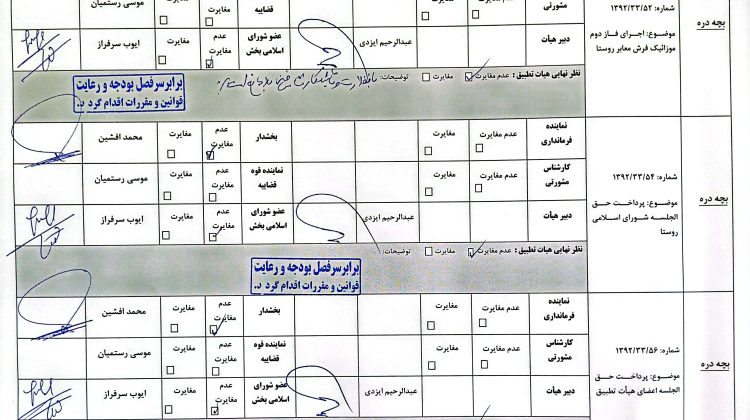 بچه دره
شماره: ۱۳۹۲/۳۳/۵۲
موضوع: اجرای فاز دوم
موزائیک فرش معابر روستا
مشورتی
مغایرت
قضاییه
مغایرت
مغایرت
موسی رستمیان
دبیر هیأت
عبدالرحیم ایزدی
عضو شورای
اسلامی بخش
عدم
مغایرت
مغایرت
ایوب سرفراز
نظر نهایی هیات تطبیق: عدم مغایرت مغایرت توضیحات:
برابر سرفصل بودجه و رعایت
قوانین و مقررات اقدام گردد.
بچه دره
شماره: ۱۳۹۲/۳۳/۵۴
موضوع: پرداخت حق
الجلسه شورای اسلامی
روستا
نماینده
فرمانداری
عدم مغایرت
مغایرت
بخشدار
عدم
مغایرت
مغایرت
محمد افشین
کارشناس
مشورتی
عدم مغایرت
مغایرت
نماینده قوه
قضاییه
عدم
مغایرت
مغایرت
موسی رستمیان
دبیر هیأت
عبدالرحیم ایزدی
عضو شورای
اسلامی بخش
عدم
مغایرت
مغایرت
ایوب سرفراز
نظر نهایی هیات تطبیق: عدم مغایرت مغایرت توضیحات:
برابر سرفصل بودجه و رعایت
قوانین و مقررات اقدام گردد.
بچه دره
شماره: ۱۳۹۲/۳۳/۵۶
موضوع: پرداخت حق
الجلسه اعضای هیأت تطبیق
نماینده
فرمانداری
عدم مغایرت
مغایرت
بخشدار
عدم
مغایرت
مغایرت
محمد افشین
کارشناس
مشورتی
عدم مغایرت
مغایرت
نماینده قوه
قضاییه
عدم
مغایرت
مغایرت
موسی رستمیان
دبیر هیأت
عبدالرحیم ایزدی
عضو شورای
اسلامی بخش
عدم
مغایرت
مغایرت
ایوب سرفراز